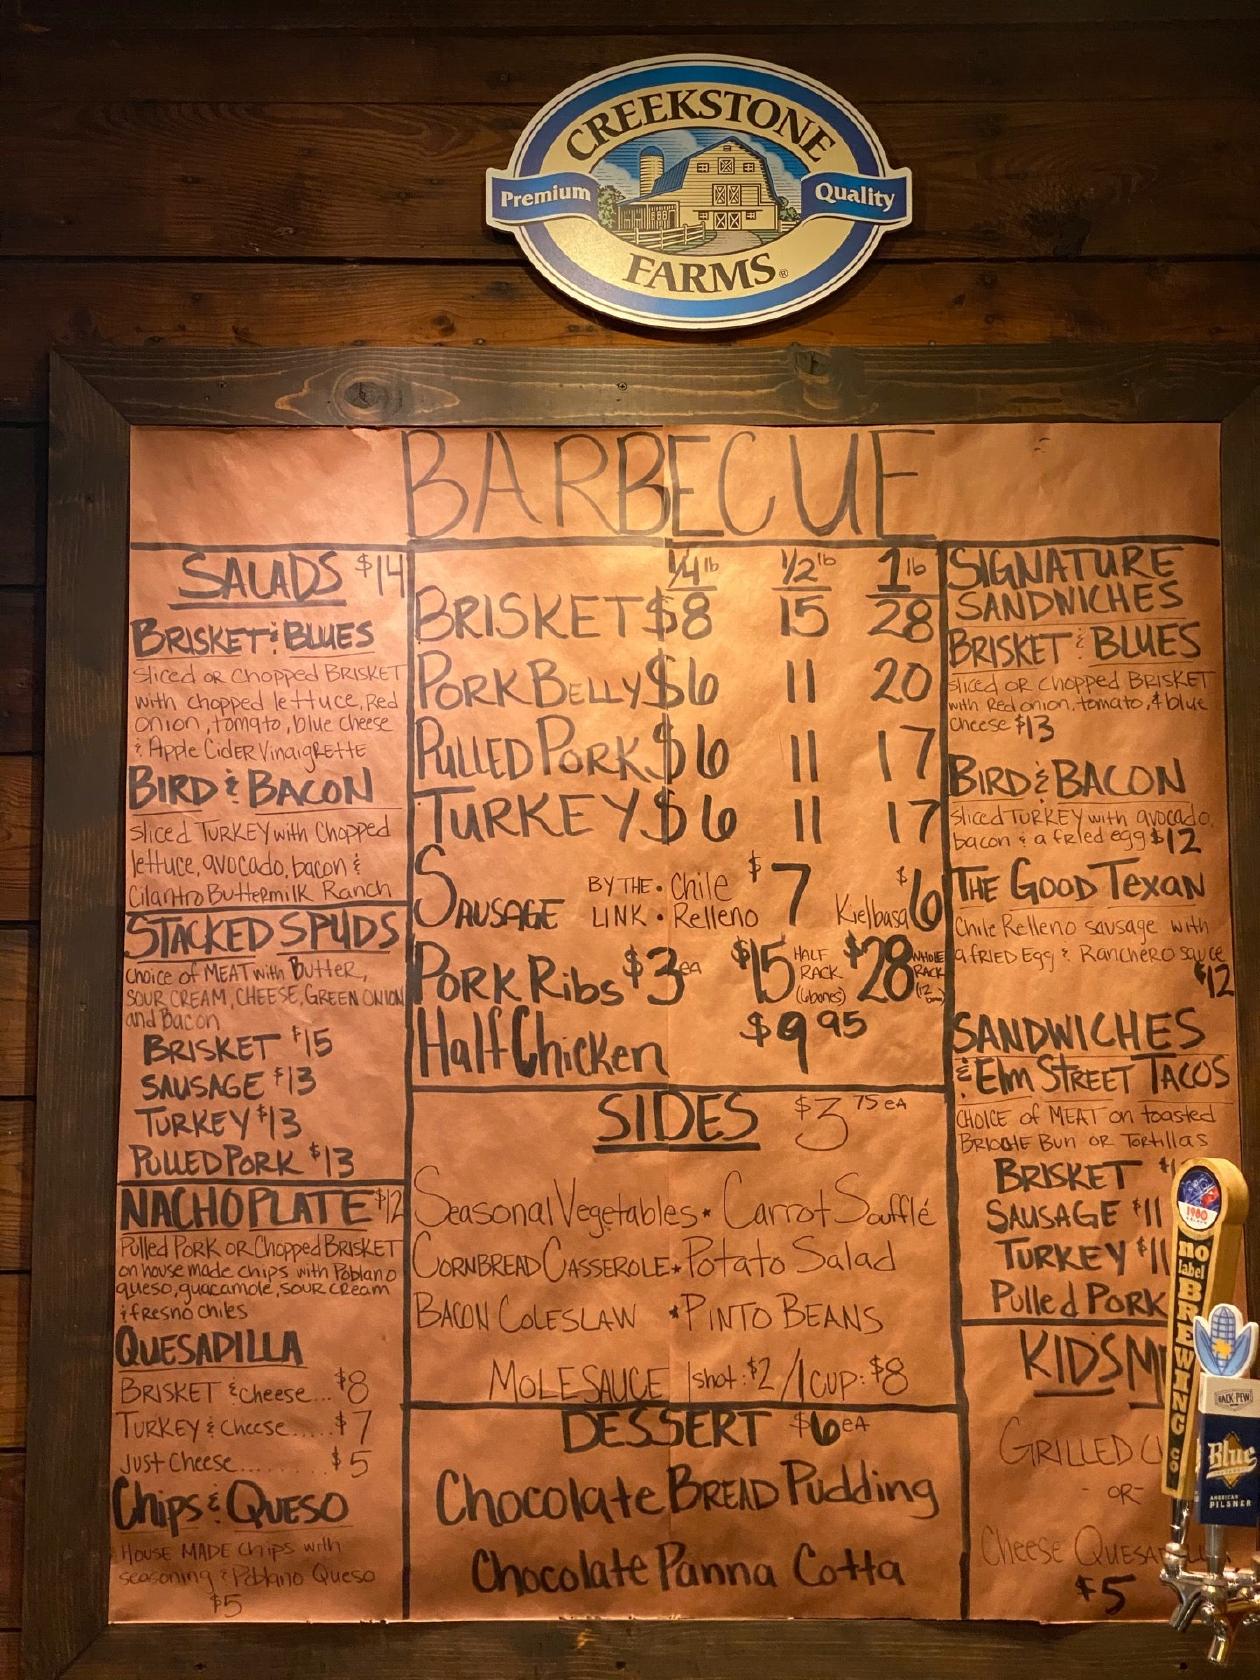 CREEKSTONE
Premium Quality
FARMS®
BARBECUE
SALADS $14
BRISKET & BLUES
sliced or chopped BRISKET
with chopped lettuce, Red
onion, tomato, blue cheese
& Apple Cider Vinaigrette
BIRD & BACON
sliced TURKEY with chopped
lettuce, avocado, bacon &
Cilantro Buttermilk Ranch
STACKED SPUDS
choice of MEAT with Butter,
SOUR CREAM, CHEESE, GREEN ONION
and Bacon
BRISKET $15
SAUSAGE $13
TURKEY $13
PULLED PORK $13
NACHO PLATE $12
Pulled PORK OR Chopped BRISKET
on house made chips with Poblano
queso, guacamole, sour cream
& fresno chiles
QUESADILLA
BRISKET & cheese... $8
TURKEY & cheese..... $7
Just Cheese........ $5
Chips & QUESO
HOUSE MADE chips with
seasoning & Poblano Queso
$5
1/4 lb 1/2 lb 1 lb
BRISKET $8 15 28
PORK BELLY $6 11 20
PULLED PORK $6 11 17
TURKEY $6 11 17
SAUSAGE BY THE LINK • Chile Relleno $7 Kielbasa $6
PORK RIBS $3 ea $15 HALF RACK (6 bones) $28 WHOLE RACK (12
Half Chicken $9.95
SIDES $3.75 EA
Seasonal Vegetables * Carrot Soufflé
CORNBREAD CASSEROLE * Potato Salad
BACON COLESLAW * PINTO BEANS
MOLE SAUCE 1 shot: $2 / 1 CUP: $8
DESSERT $6 EA
Chocolate BREAD Pudding
Chocolate Panna Cotta
SIGNATURE
SANDWICHES
BRISKET & BLUES
sliced OR chopped BRISKET
with Red onion, tomato, & blue
cheese $13
BIRD & BACON
sliced TURKEY with avocado,
bacon & a fried egg $12
THE GOOD TEXAN
Chile Relleno sausage with
a FRIED Egg & Ranchero sauce
$12
SANDWICHES
& Elm STREET TACOS
CHOICE of MEAT on toasted
BRIOCHE BUN OR Tortillas
BRISKET
SAUSAGE $11
TURKEY $11
Pulled PORK
KIDS
GRILLED
-OR-
Cheese
$5
1980
no
label
BREWING CO
BACK PEW
Blue
AMERICAN
PILSNER